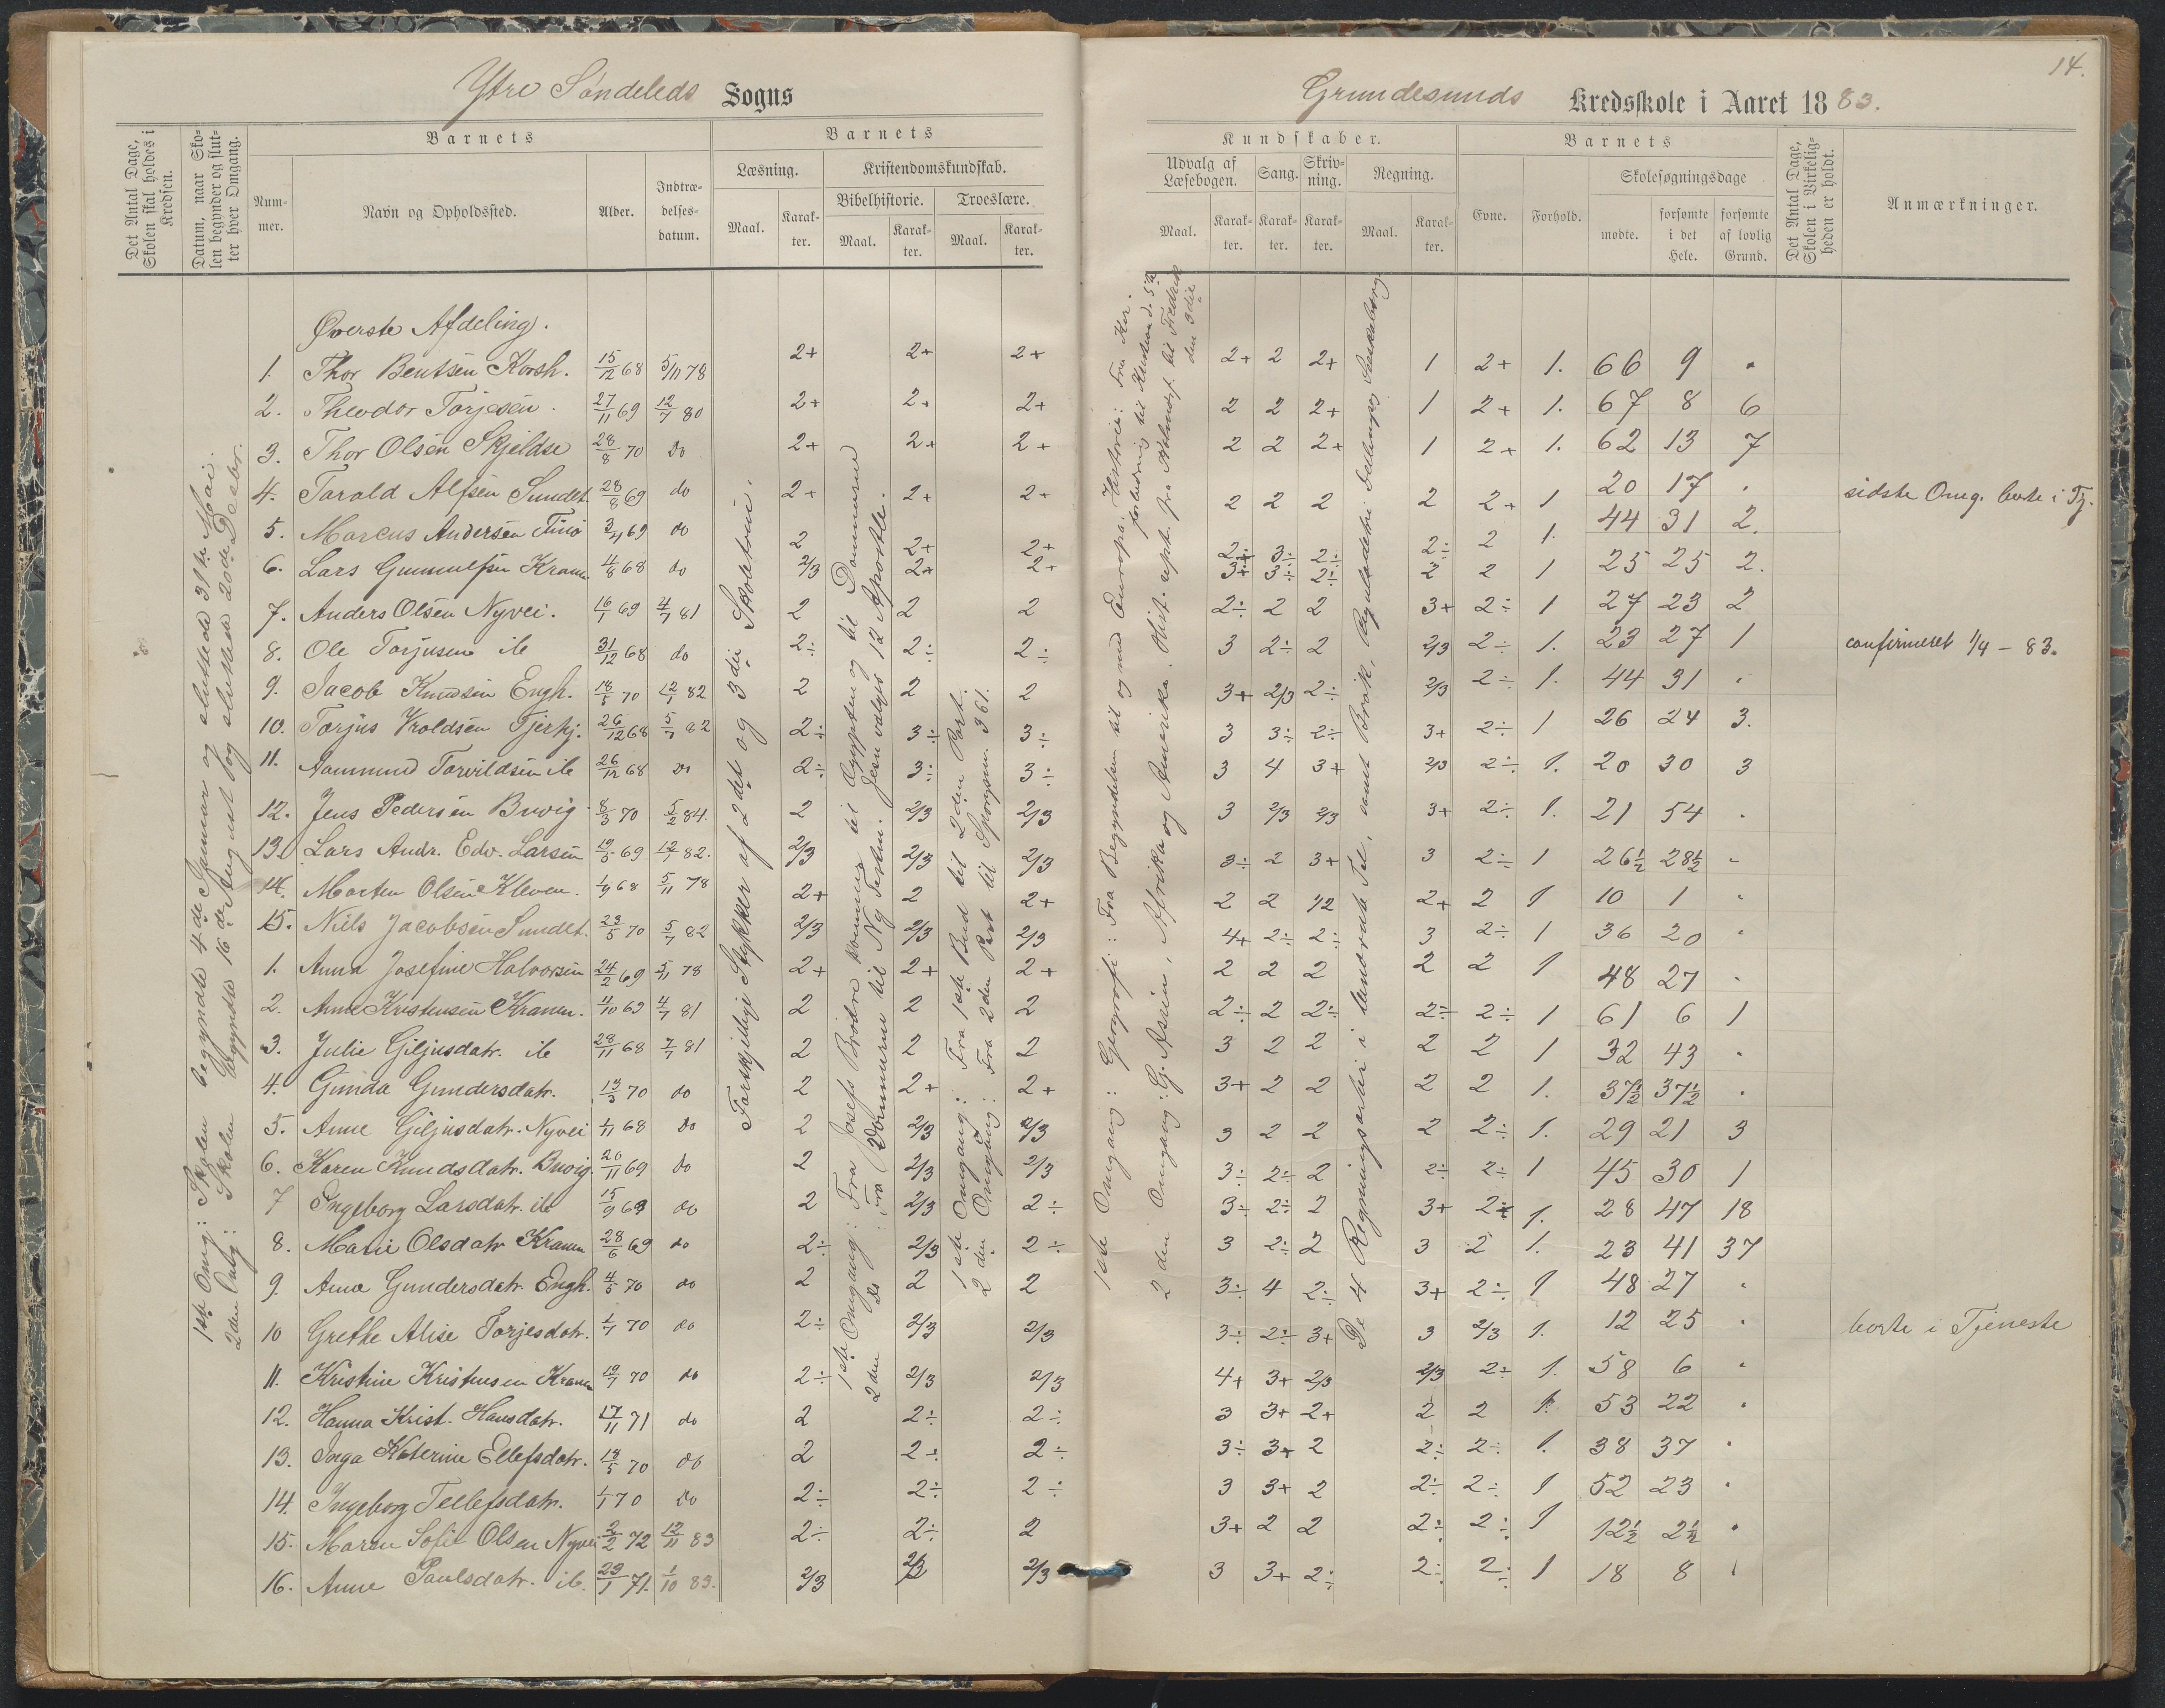 14.
Ytre Søndeleds Sogns
Grundesunds Kredsskole i Aaret 1883.
Det Antal Dage, Skolen skal holdes i Kredsen.
Datum, naar Skolen begynder og slutter hver Omgang.
Barnets
Nummer.
Navn og Opholdssted.
Alder.
Indtrædelsesdatum.
Barnets
Læsning.
Kristendomskundskab.
Bibelhistorie.
Troeslære.
Maal.
Karakter.
Maal.
Karakter.
Maal.
Karakter.
Kundskaber.
Udvalg af Læsebogen.
Sang.
Skrivning.
Regning.
Maal.
Karakter.
Karakter.
Karakter.
Maal.
Karakter.
Barnets
Evne.
Forhold.
Skolesøgningsdage
mødte.
forsømte i det Hele.
forsømte af lovlig Grund.
Det Antal Dage, Skolen i Virkeligheden er holdt.
Anmærkninger.
1ste Omg: Skolen begyndte 4de Januar og sluttede 31te Mai.
2den Omg: Skolen begyndte 16de August og sluttede 20de Decbr.
Forskjellige Stykker af 2det og 3die Skoletrin.
1ste Omgang: Fra Josefs Brødre kommer til Ægypten og til Dommerne
2den Do: Fra Dommerne til Ny Testm. Jesu valges 12 Apostle.
1ste Omgang: Fra 1ste Bud til 2den Part.
2den Omgang: Fra 2den Part til Spørgsm. 361.
1ste Omgang: Geografi: Fra Begyndelsen til og med Europa. Historie: Fra
2den Omgang: G. Asien, Afrika og Amerika.
De 4 Regningsarter i benævnte Tal, samt Brøk,
Øverste Afdeling.
1. Thor Bentsen Korsh. 15/12 68 5/11 78 2+ 2+ 2+ 2+ 2 2+ 1 2+ 1. 66 9 "
2. Theodor Torjesen. 27/11 69 12/7 80 2+ 2+ 2+ 2 2 2+ 1 2+ 1. 67 8 6
3. Thor Olsen Skjeldsø 28/8 70 do 2+ 2+ 2+ 2 2 2+ 1 2+ 1. 62 13 7
4. Tarald Alfsen Sundet. 28/8 69 do 2+ 2+ 2+ 2 2 2 2 2+ 1 20 17 " sidste Omg. borte i Tj.
5. Marcus Andersen Finø 3/4 69 do 2 2+ 2+ 2÷ 3÷ 2÷ 2÷ 2 1. 44 31 2.
6. Lars Gunnulfsen Kranen 4/8 68 do 2/3 2+ 2+ 3+ 3÷ 2÷ 2 2 1 25 25 2.
7. Anders Olsen Nyvei. 16/1 69 4/7 81 2 2 2 2÷ 2 2 3+ 2÷ 1 27 23 2
8. Ole Torjusen ib 31/12 68 do 2÷ 2÷ 2÷ 3 2÷ 2 2/3 2÷ 1. 23 27 1 confirmeret 1/4 - 83.
9. Jacob Knudsen Engh. 18/5 70 12/1 82 2 2 2 3+ 2/3 2÷ 2/3 2÷ 1. 44 31 "
10. Torjus Vroldsen Tjerkj. 26/12 68 5/1 82 2÷ 3÷ 3÷ 3 3÷ 2÷ 3+ 2÷ 1 26 24 3.
11. Aammund Tarvildsen ib 26/12 68 do 2÷ 3÷ 3÷ 3 4 3+ 2/3 2÷ 1. 20 30 3
12. Jens Pedersen Buvig 8/3 70 5/2 84. 2 2/3 2/3 3 2/3 2/3 3+ 2÷ 1. 21 54 "
13. Lars Andr. Edv. Larsen 19/5 69 12/1 82. 2/3 2/3 2/3 3÷ 2 3+ 3 2÷ 1 26½ 28½ "
14. Morten Olsen Kleven. 1/9 68 5/11 78 2+ 2 2+ 2 2 1/2 2+ 2 1 10 1 "
15. Niels Jacobsen Sundet. 23/5 70 5/7 82 2/3 2/3 2/3 4+ 2÷ 2÷ 3 2÷ 1 36 20 "
1. Anna Josefine Halvorsen 24/2 69 5/11 78 2+ 2+ 2+ 2 2 2 2 2 1 48 27 "
2. Anne Kristensen Kranen. 4/10 69 4/7 81 2 2 2 2÷ 2 2÷ 2÷ 2÷ 1 61 6 1
3. Julie Giljusdatr. ib 28/11 68 7/7 81 2 2 2 3 2 2 2 2 1 32 43 "
4. Gunda Gundersdatr. 13/5 70 do 2 2+ 2+ 3+ 2 2 2 2 1. 37½ 37½ "
5. Anne Giljusdatr. Nyvei 1/11 68 do 2 2/3 2/3 3 2 2 2 2÷ 1. 29 21 3
6. Karen Knudsdatr. Buvig. 20/11 69 do 2 2/3 2/3 3÷ 2÷ 2 2÷ 2÷ 1 45 30 1
7 Ingeborg Larsdatr. ib 15/9 69 do 2 2/3 2÷ 3÷ 2÷ 2 3+ 2÷ 1. 28 47 18
8. Marie Olsdatr Kranen 28/6 69 do 2÷ 2/3 2÷ 3 2÷ 2 3 2 1. 23 41 37
9. Anna Gundersdatr. Engh. 4/5 70 do 2 2 2 3÷ 4 2÷ 3+ 2÷ 1 48 27 "
10 Grethe Alise Torjesdatr. 1/7 70 do 2÷ 2/3 2/3 3÷ 2÷ 3+ 3 2/3 1. 12 25 " borte i Tjeneste
11. Kristine Kristensen Kranen 19/7 70 do 2÷ 2/3 2/3 4+ 3+ 2/3 2/3 2÷ 1. 58 6 "
12. Hanna Krist. Hansdatr. 17/11 71 do 2 2÷ 2÷ 3 3+ 2+ 2 2 1. 53 22 "
13. Inga Katerine Ellefsdatr. 13/5 70 do 2 2÷ 2÷ 3÷ 3+ 2 2÷ 2÷ 1. 38 37 "
14. Ingeborg Tellefsdatr. 1/1 70 do 2÷ 2÷ 2÷ 3 3+ 2 2÷ 2÷ 1 52 23 "
15. Maren Sofie Olsen Nyvei 2/2 72 12/11 83 2÷ 2÷ 2 3+ 2 2 2÷ 2÷ 1 12½ 2½ "
16. Anne Paulsdatr. ib. 23/1 71. 1/10 83. 2/3 2/3 2/3 3 3+ 2÷ 2÷ 2÷ 1 18 8 "